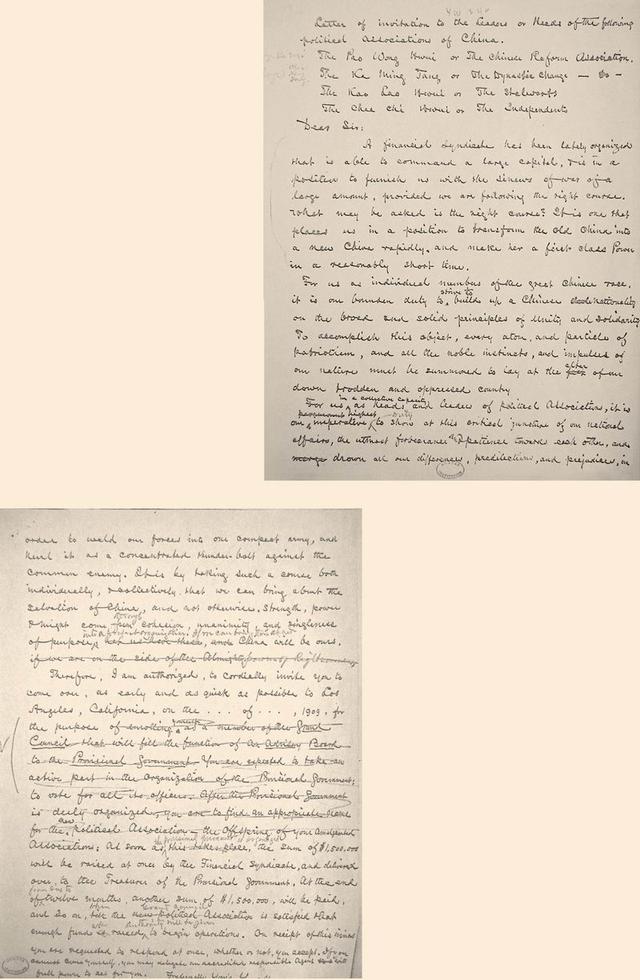 Letter of invitation to the Leaders or Heads of the following
political Associations of China.
The Pao Wong Hwui or The Chinese Reform Association.
The Ka Ming Tang or The Dynastic Change — Do —
The Kao Lao Hwui or The Stalwarts
The Chee Chi Hwui or The Independents
Dear Sir:
A financial Syndicate has been lately organized
that is able to command a large capital, & is in a
position to furnish us with the sinews of war of a
large amount, provided we are following the right course.
What may be asked is the right course? It is one that
places us in a position to transform the old China into
a new China rapidly, and make her a first class Power
in a reasonably short time.
For us as individual members of the great Chinese race,
it is our bounden duty to strive to build up a Chinese nationality
on the broad and solid principles of Unity and Solidarity
To accomplish this object, every atom and particle of
patriotism, and all the noble instincts, and impulses of
our nature must be summoned to lay at the altar of our
down trodden and oppressed country
For us in a collective capacity as heads and leaders of political Associations, it is
our paramount highest imperative duty to show at this critical juncture of our national
affairs, the utmost forbearance & patience towards each other, and
merge drown all our differences, predilections, and prejudices, in
order to weld our forces into one compact army, and
hurl it as a concentrated thunder-bolt against the
common enemy. It is by taking such a course both
individually, & collectively that we can bring about the
salvation of China, and not otherwise. Strength, power
& might come from cohesion, unanimity, and singleness
of purpose, let us have these, and China will be ours.
if we are on the side of the Almighty
Therefore, I am authorized, to cordially invite you to
come over, as early and as quick as possible to Los
Angeles, California, on the ... of ..., 1909, for
the purpose of enrolling yourself as a member of the Grand
Council that will fill the function of an Advisory Board
to the Provisional Government. You are expected to take an
active part in the organization of the Provisional Government;
to vote for all its officers. After the Provisional Government
is duly organized, you are to find an appropriate name
for the new political Association, the Offspring of your
Associations; As soon as this takes place, the sum of $1,500,000
will be raised at once by the Financial Syndicate, and delivered
over, to the Treasurer of the Provisional Government. At the end
of twelve months, another sum of $1,500,000, will be paid,
and so on, till the new political Association is satisfied that
enough fund is raised, to begin operations. On receipt of this
you are requested to respond at once, whether or not, you accept. If you
cannot come yourself, you may delegate an accredited responsible Agent with
full power to act for you.